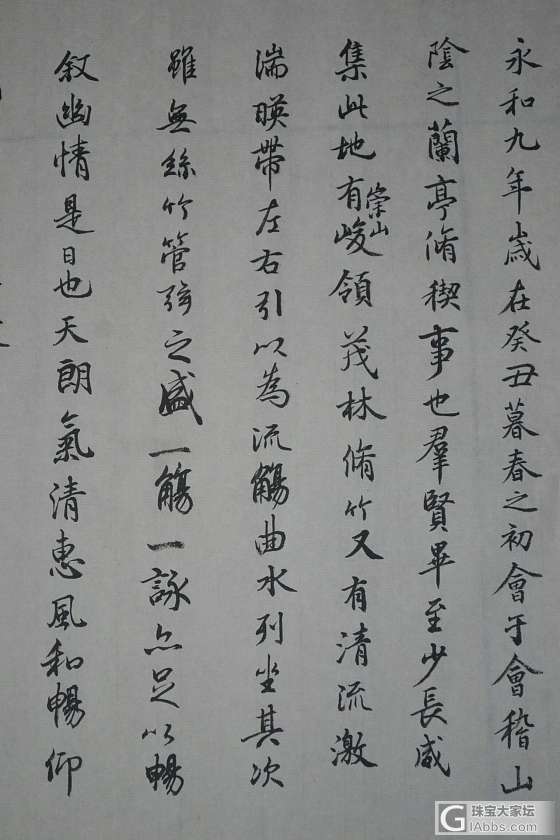 永和九年歲在癸丑暮春之初會于會稽山
陰之蘭亭脩稧事也羣賢畢至少長咸
集此地有崇山峻領茂林脩竹又有清流激
湍暎帶左右引以為流觴曲水列坐其次
雖無絲竹管弦之盛一觴一詠亦足以暢
敘幽情是日也天朗氣清惠風和暢仰
珠宝大家坛
GIabbs.com